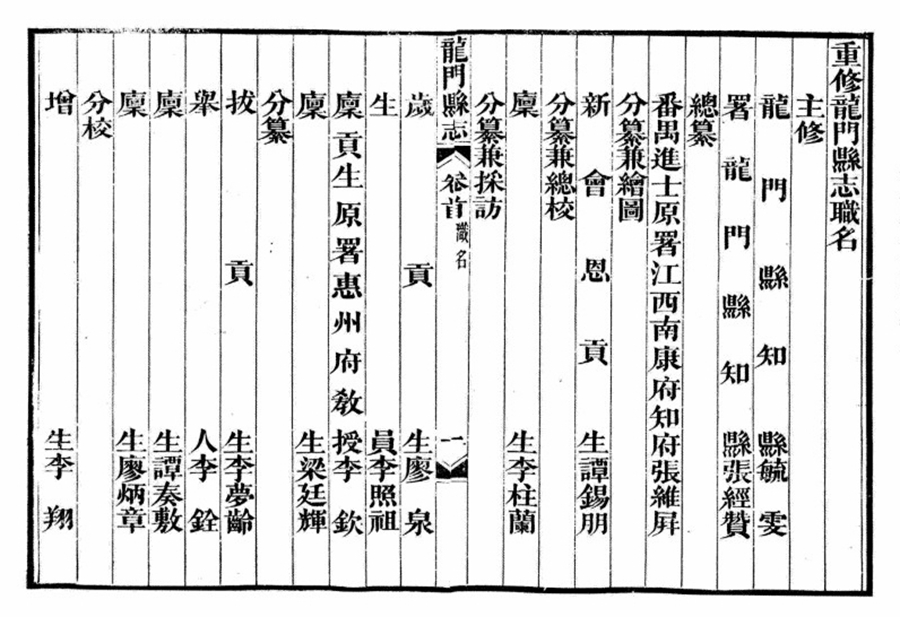 重修龍門縣志職名
主修
龍門縣知縣毓雯
署龍門縣知縣張經贊
總纂
番禺進士原署江西南康府知府張維屛
分纂兼繪圖
新會恩貢生譚錫朋
分纂兼總校
廩生李柱蘭
分纂兼採訪
龍門縣志
卷首
職名
一
歲貢生廖泉
生員李照祖
廩貢生原署惠州府敎授李欽
廩生梁廷輝
分纂
拔貢生李夢齡
舉人李銓
廩生譚奏敷
廩生廖炳章
分校
增生李翔